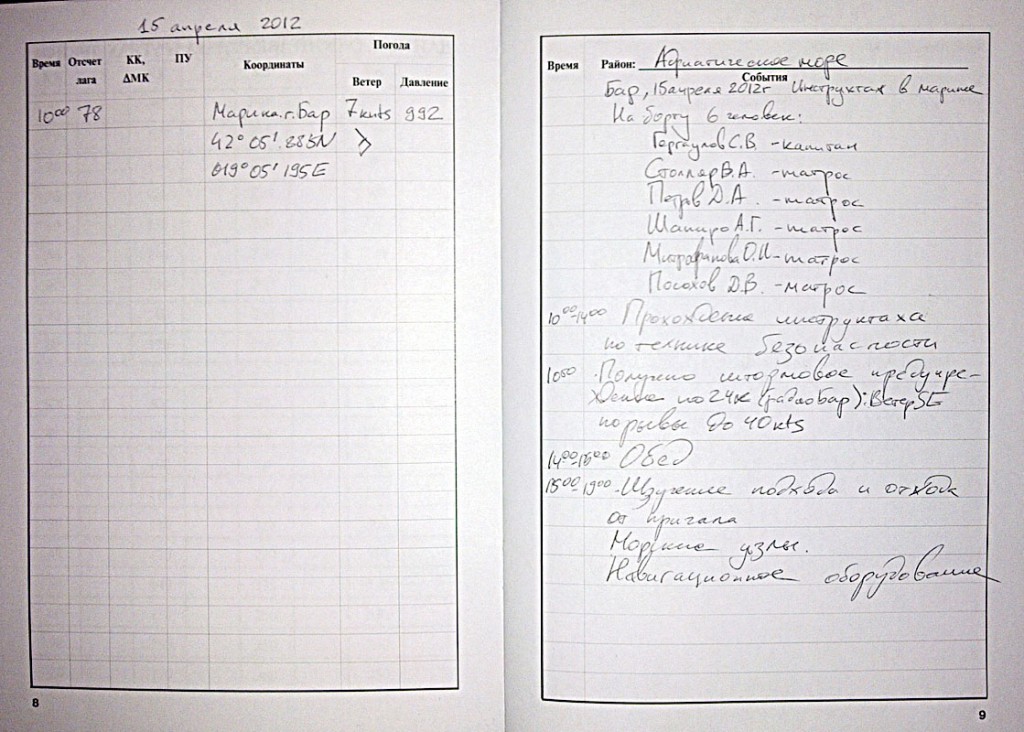 15 апреля 2012
Время Отсчет лага КК, ДМК ПУ Координаты Погода
Ветер Давление
10⁰⁰ 78 Марина г. Бар 7 knts 992
42° 05'.885N
019° 05' 195E
8
Время Район: Адриатическое море
События
Бар, 15 апреля 2012г Инструктаж в марине
На борту 6 человек:
С.В. - капитан
Столляр В.А. - матрос
Петров Д.А. - матрос
Шапиро А.Г. - матрос
Митрафанова О.И - матрос
Посохов Д.В. - матрос
10⁰⁰-14⁰⁰ Прохождение инструктажа
по технике безопасности
10⁵⁰ Получено штормовое предупре-
ждение по 24к (радио Бар): Ветер SE
порывы до 40 kts
14⁰⁰-15⁰⁰ Обед
15⁰⁰-19⁰⁰ Изучение подхода и отхода
от причала
Морские узлы.
Навигационное оборудование
9